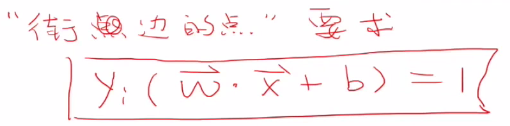 "街边的点." 要求
yᵢ(w⃗·x⃗+b)=1